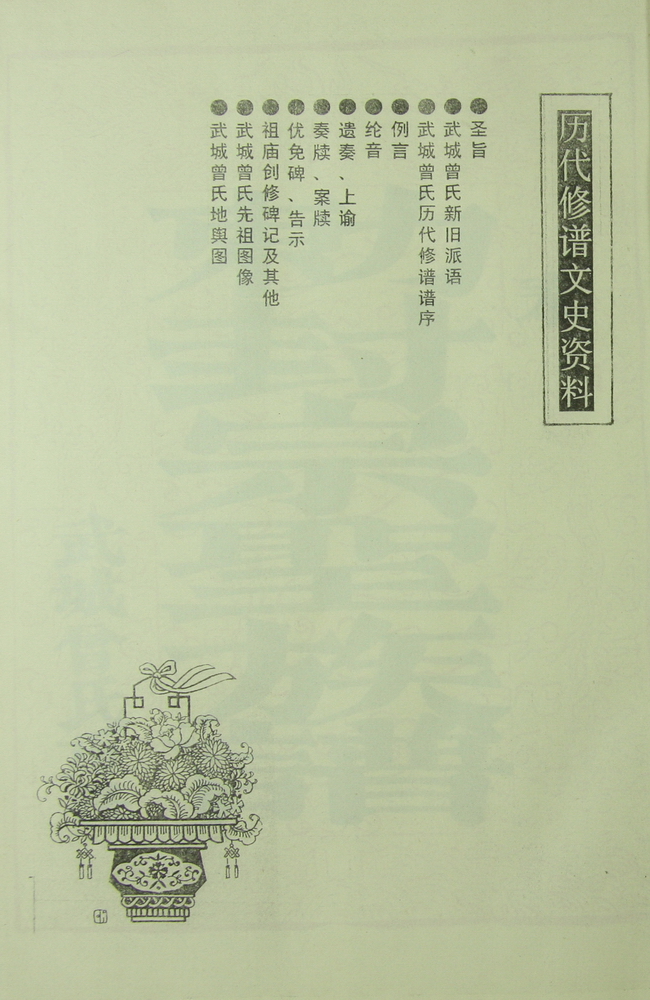 历代修谱文史资料
●圣旨
●武城曾氏新旧派语
●武城曾氏历代修谱谱序
●例言
●纶音
●遗奏、上谕
●奏牍、案牍
●优免碑、告示
●祖庙创修碑记及其他
●武城曾氏先祖图像
●武城曾氏地舆图